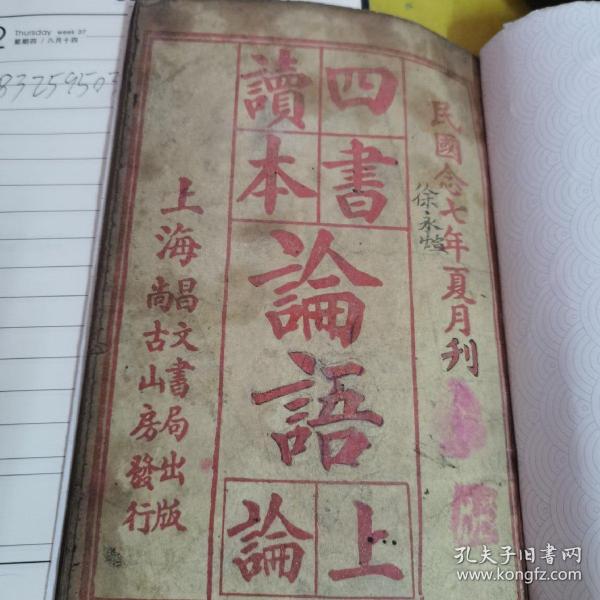 Thursday week 37
星期四 / 八月十四
民國念七年夏月刋
徐永煊
四書
讀本
論語
上論
上海
昌文書局出版
尚古山房發行
孔夫子旧书网
www.kongfz.com